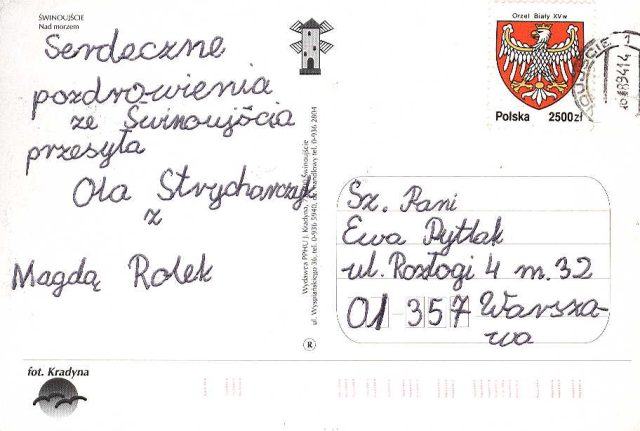 ŚWINOUJŚCIE
Nad morzem
Serdeczne
pozdrowienia
ze Świnoujścia
przesyła
Ola Strycharczyk
z
Magdą Rolek
Wydawca PPHU J. Kradyna, Świnoujście
ul. Wyspiańskiego 36, tel. 0-936 5940, handlowy tel. 0-936 2804
R
Orzeł Biały XVw
Polska 2500zł
Sz. Pani
Ewa Pytlak
ul. Rozłogi 4 m. 32
01-357 Warsza-
wa
fot. Kradyna